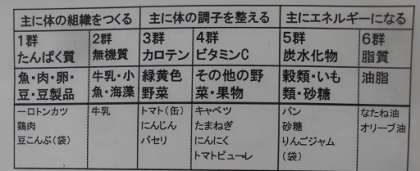 主に体の組織をつくる 主に体の調子を整える 主にエネルギーになる
1群 2群 3群 4群 5群 6群
たんぱく質 無機質 カロテン ビタミンC 炭水化物 脂質
魚・肉・卵・ 牛乳・小 緑黄色 その他の野 穀類・いも 油脂
豆・豆製品 魚・海藻 野菜 菜・果物 類・砂糖
一口トンカツ 牛乳 トマト(缶) キャベツ パン なたね油
鶏肉 にんじん たまねぎ 砂糖 オリーブ油
豆こんぶ(袋) パセリ にんにく りんごジャム
トマトピューレ (袋)